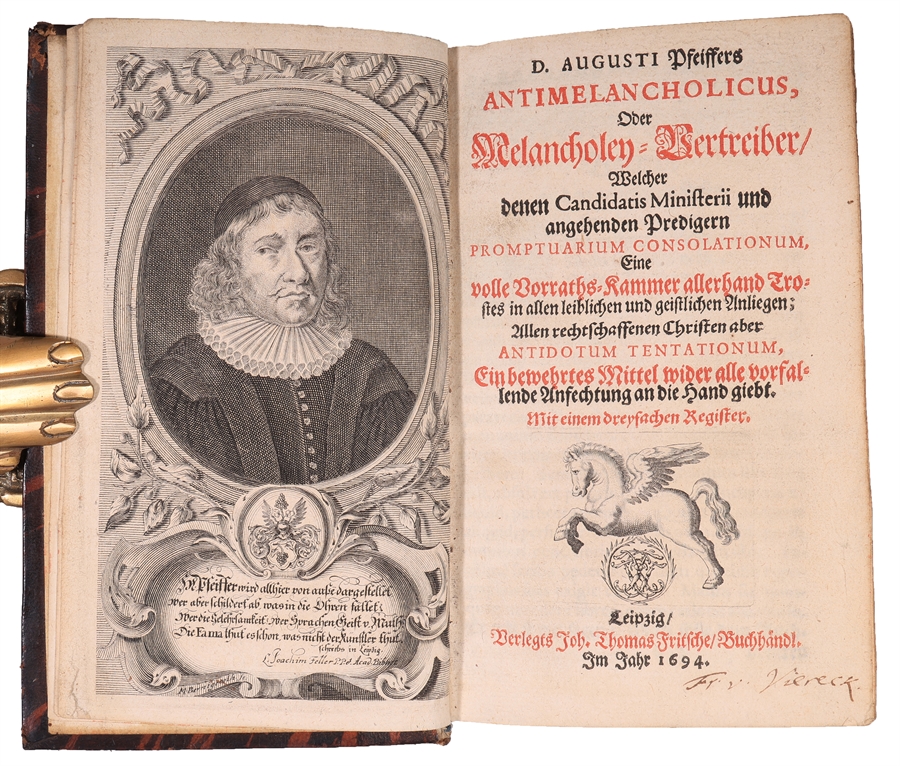 H Pfeiffer wird allhier von auße dargestellet
Wer aber schildert ab was in die Ohren fället?
Wer die Gelehrsamkeit, wer Sprachen Geist v. Muth?
Die Fama thut es schon, was nicht der Künstler thut.
schriebs in Leipzig
L. Joachim Feller P.P. Acad.
D. AUGUSTI Pfeiffers
ANTIMELANCHOLICUS,
Oder
Melancholey-Vertreiber/
Welcher
denen Candidatis Ministerii und
angehenden Predigern
PROMPTUARIUM CONSOLATIONUM,
Eine
volle Vorraths-Kammer allerhand Tro-
stes in allen leiblichen und geistlichen Anliegen;
Allen rechtschaffenen Christen aber
ANTIDOTUM TENTATIONUM,
Ein bewehrtes Mittel wider alle vorfal-
lende Anfechtung an die Hand giebt.
Mit einem dreyfachen Register.
Leipzig/
Verlegts Joh. Thomas Fritsche/ Buchhändl.
Im Jahr 1694.
Fr. v. Viereck.